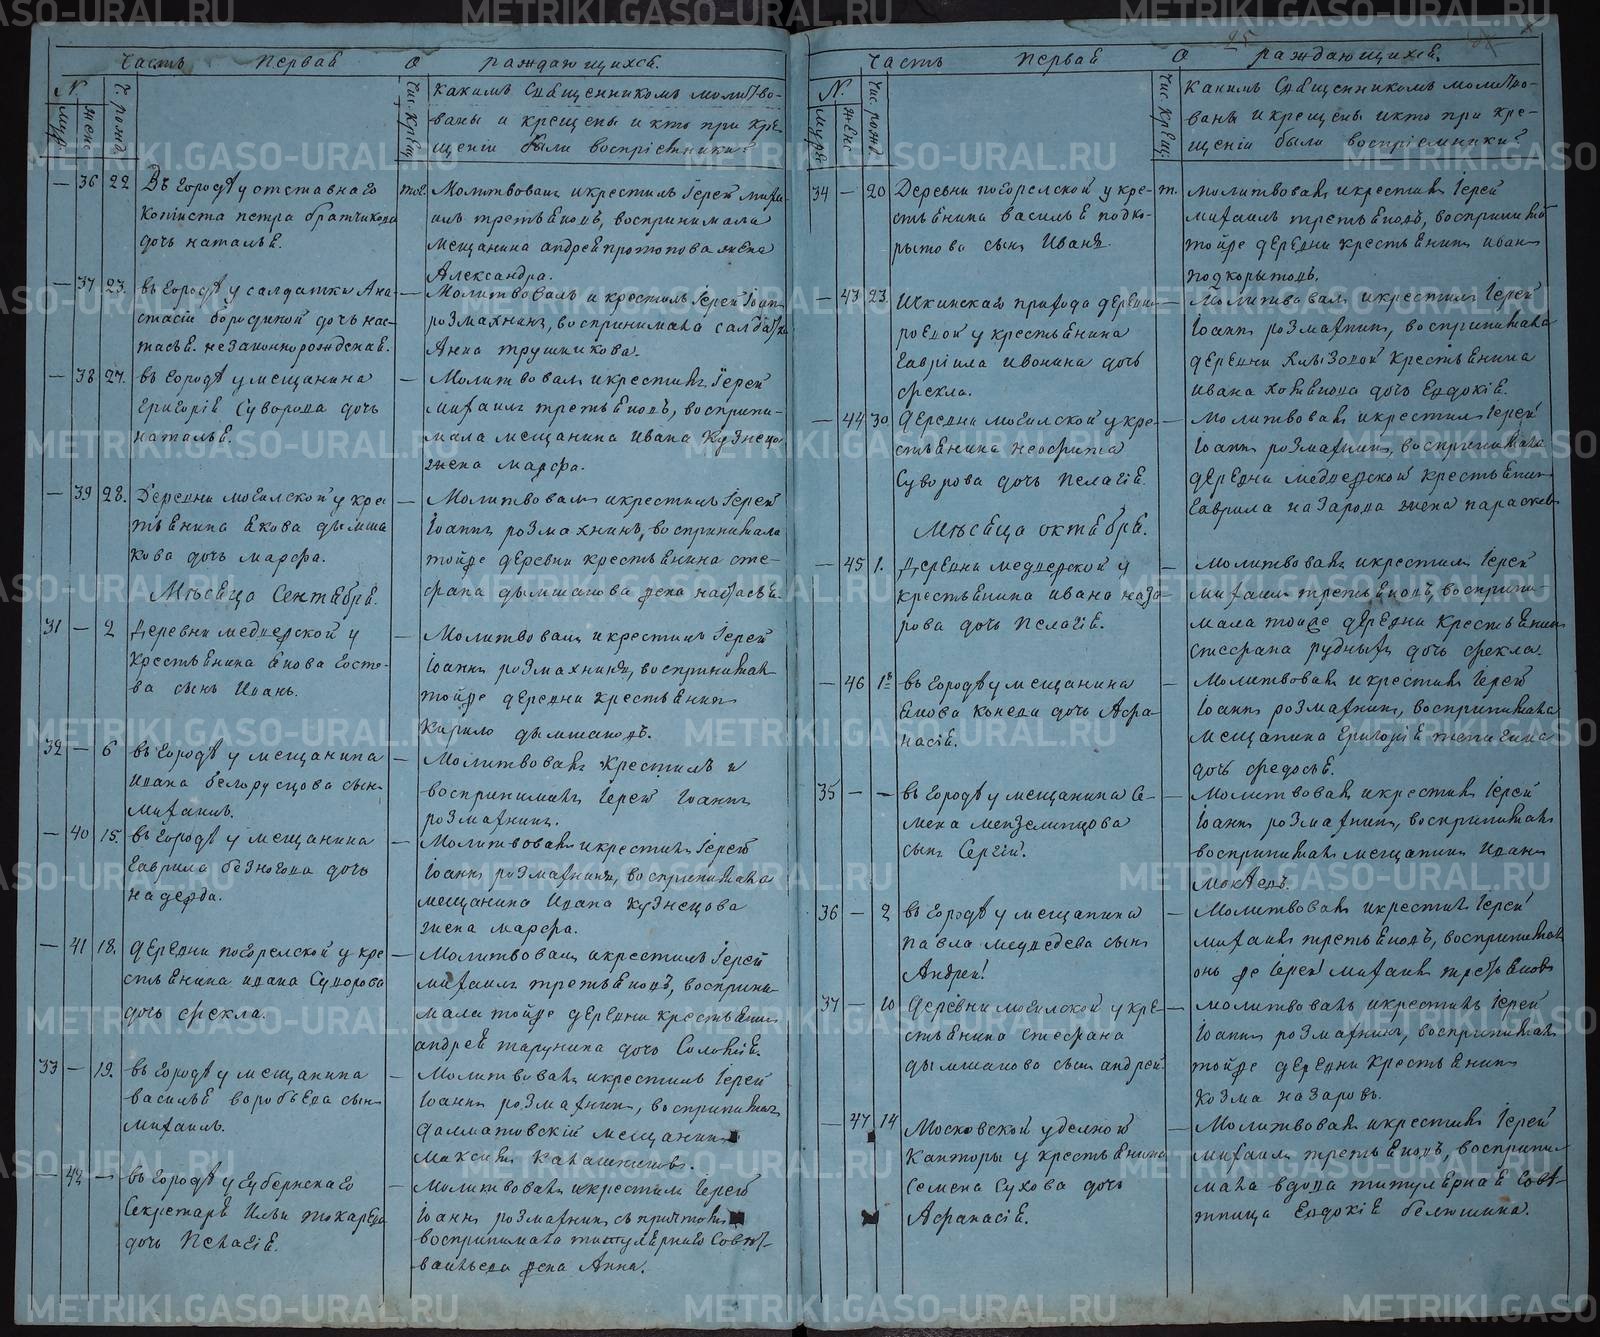 Часть Первая о раждающихся.
N
муж.
жен.
Ч. рожд.
Чис. крещ.
Какимъ Священникомъ молитво-
ваны и крещены и кто при кре-
щеніи были воспріемники?
— 36 22 Въ городѣ у отставнаго
Копіиста петра братчикова
дочь наталья.
тог. Молитвовалъ и крестилъ Іерей миха-
илъ третьяковъ, воспринимала
мещанина андрея протопопова жена
Александра.
— 37 23. въ городѣ у салдатки Ана-
стасіи бородиной дочь нас-
тасья. незаконнорожденая.
— Молитвовалъ и крестилъ Іерей Іоаннъ
розмахнинъ, воспринимала салдатка
Анна трушникова.
— 38 27. въ городѣ у мещанина
григорія Суворова дочь
наталья.
— Молитвовалъ и крестилъ Іерей
михаилъ третьяковъ, восприни-
мала мещанина ивана Кузнецова
жена марфа.
— 39 28. Деревни могилской у крес
тьянина якова дымша
кова дочь марфа.
— Молитвовалъ и крестилъ Іерей
Іоаннъ розмахнинъ, воспринимала
тойже деревни крестьянина сте-
фана дымшакова жена настасья.
Мѣсяца Сентября.
31 — 2 Деревни медведской у
крестьянина якова
ва сынъ Иванъ.
— Молитвовалъ и крестилъ Іерей
Іоаннъ розмахнинъ, воспринималъ
тойже деревни крестьянинъ
Кирило дымшаковъ.
32 — 6 въ городѣ у мещанина
ивана белорусцова сынъ
михаилъ.
— Молитвовалъ крестилъ и
воспринималъ Іерей Іоаннъ
розмахнинъ.
— 40 15. въ городѣ у мещанина
гаврила безногова дочь
надежда.
— Молитвовалъ и крестилъ Іерей
Іоаннъ розмахнинъ, воспринимала
мещанина Ивана Кузнецова
жена марфа.
— 41 18. деревни погорелской у кре
стьянина ивана Суворова
дочь фекла.
— Молитвовалъ и крестилъ Іерей
михаилъ третьяковъ, восприни-
мала тойже деревни крестьянина
андрея тарунина дочь Соломія.
33 — 19. въ городѣ у мещанина
василья воробьева сынъ
михаилъ.
— Молитвовалъ и крестилъ Іерей
Іоаннъ розмахнинъ, воспринималъ
далматовскій мещанинъ
максимъ калашниковъ.
— 42 — въ городѣ у губернскаго
Секретаря Ильи токарева
дочь Пелагія.
— Молитвовалъ и крестилъ Іерей
Іоаннъ розмахнинъ съ причтомъ
воспринимала титулярнаго Совет-
жена Анна.
Часть Первая о раждающихся.
N.
мужс.
женс.
Чис. рожд.
Чис. крещ.
Какимъ Священникомъ молитво-
ваны и крещены и кто при кре-
щеніи были воспріемники?
34 — 20 Деревни погорелской у кре-
стьянина василья подко-
рытова сынъ Иванъ.
т. молитвовалъ и крестилъ Іерей
михаилъ третьяковъ, воспринималъ
тойже деревни крестьянинъ иванъ
подкорытовъ.
— 43 23. Ичкинскаго прихода деревни
у крестьянина
гавріила ивонина дочь
фекла.
— Молитвовалъ и крестилъ Іерей
Іоаннъ розмахнинъ, воспринимала
деревни крестьянина
ивана дочь Евдокія.
— 44 30. деревни могилской у кре-
стьянина неофита
Суворова дочь Пелагія.
— Молитвовалъ и крестилъ Іерей
Іоаннъ розмахнинъ, воспринимала
деревни медведской крестьянина
гаврила назарова жена параскева
Мѣсяца октября.
— 45 1. деревни медведской у
крестьянина ивана наза
рова дочь Пелагія.
— молитвовалъ и крестилъ Іерей
михаилъ третьяковъ, восприни
мала тойже деревни крестьянина
стефана рудныхъ дочь фекла.
— 46 1е въ городѣ у мещанина
якова конева дочь Афа-
насія.
— Молитвовалъ и крестилъ Іерей
Іоаннъ розмахнинъ, воспринимала
мещанина григорія
дочь федосья.
35 — — въ городѣ у мещанина се-
мена мензелинцова
сынъ Сергій.
— Молитвовалъ и крестилъ Іерей
Іоаннъ розмахнинъ, воспринималъ
воспринималъ мещанинъ Иванъ
36 — 2 въ городѣ у мещанина
павла медведева сынъ
Андрей.
— Молитвовалъ и крестилъ Іерей
михаилъ третьяковъ, воспринималъ
онъ же Іерей михаилъ третьяковъ
37 — 10 деревни могилской у кре-
стьянина стефана
дымшакова сынъ андрей.
— молитвовалъ и крестилъ Іерей
Іоаннъ розмахнинъ, воспринималъ
тойже деревни крестьянинъ
козма назаровъ.
— 47 14 Московской уделной
Канторы у крестьянина
Семена Сухова дочь
Афанасія.
— Молитвовалъ и крестилъ Іерей
михаилъ третьяковъ, восприни
мала вдова титулярная совѣ-
тница Евдокія белюшина.
METRIKI.GASO-URAL.RU